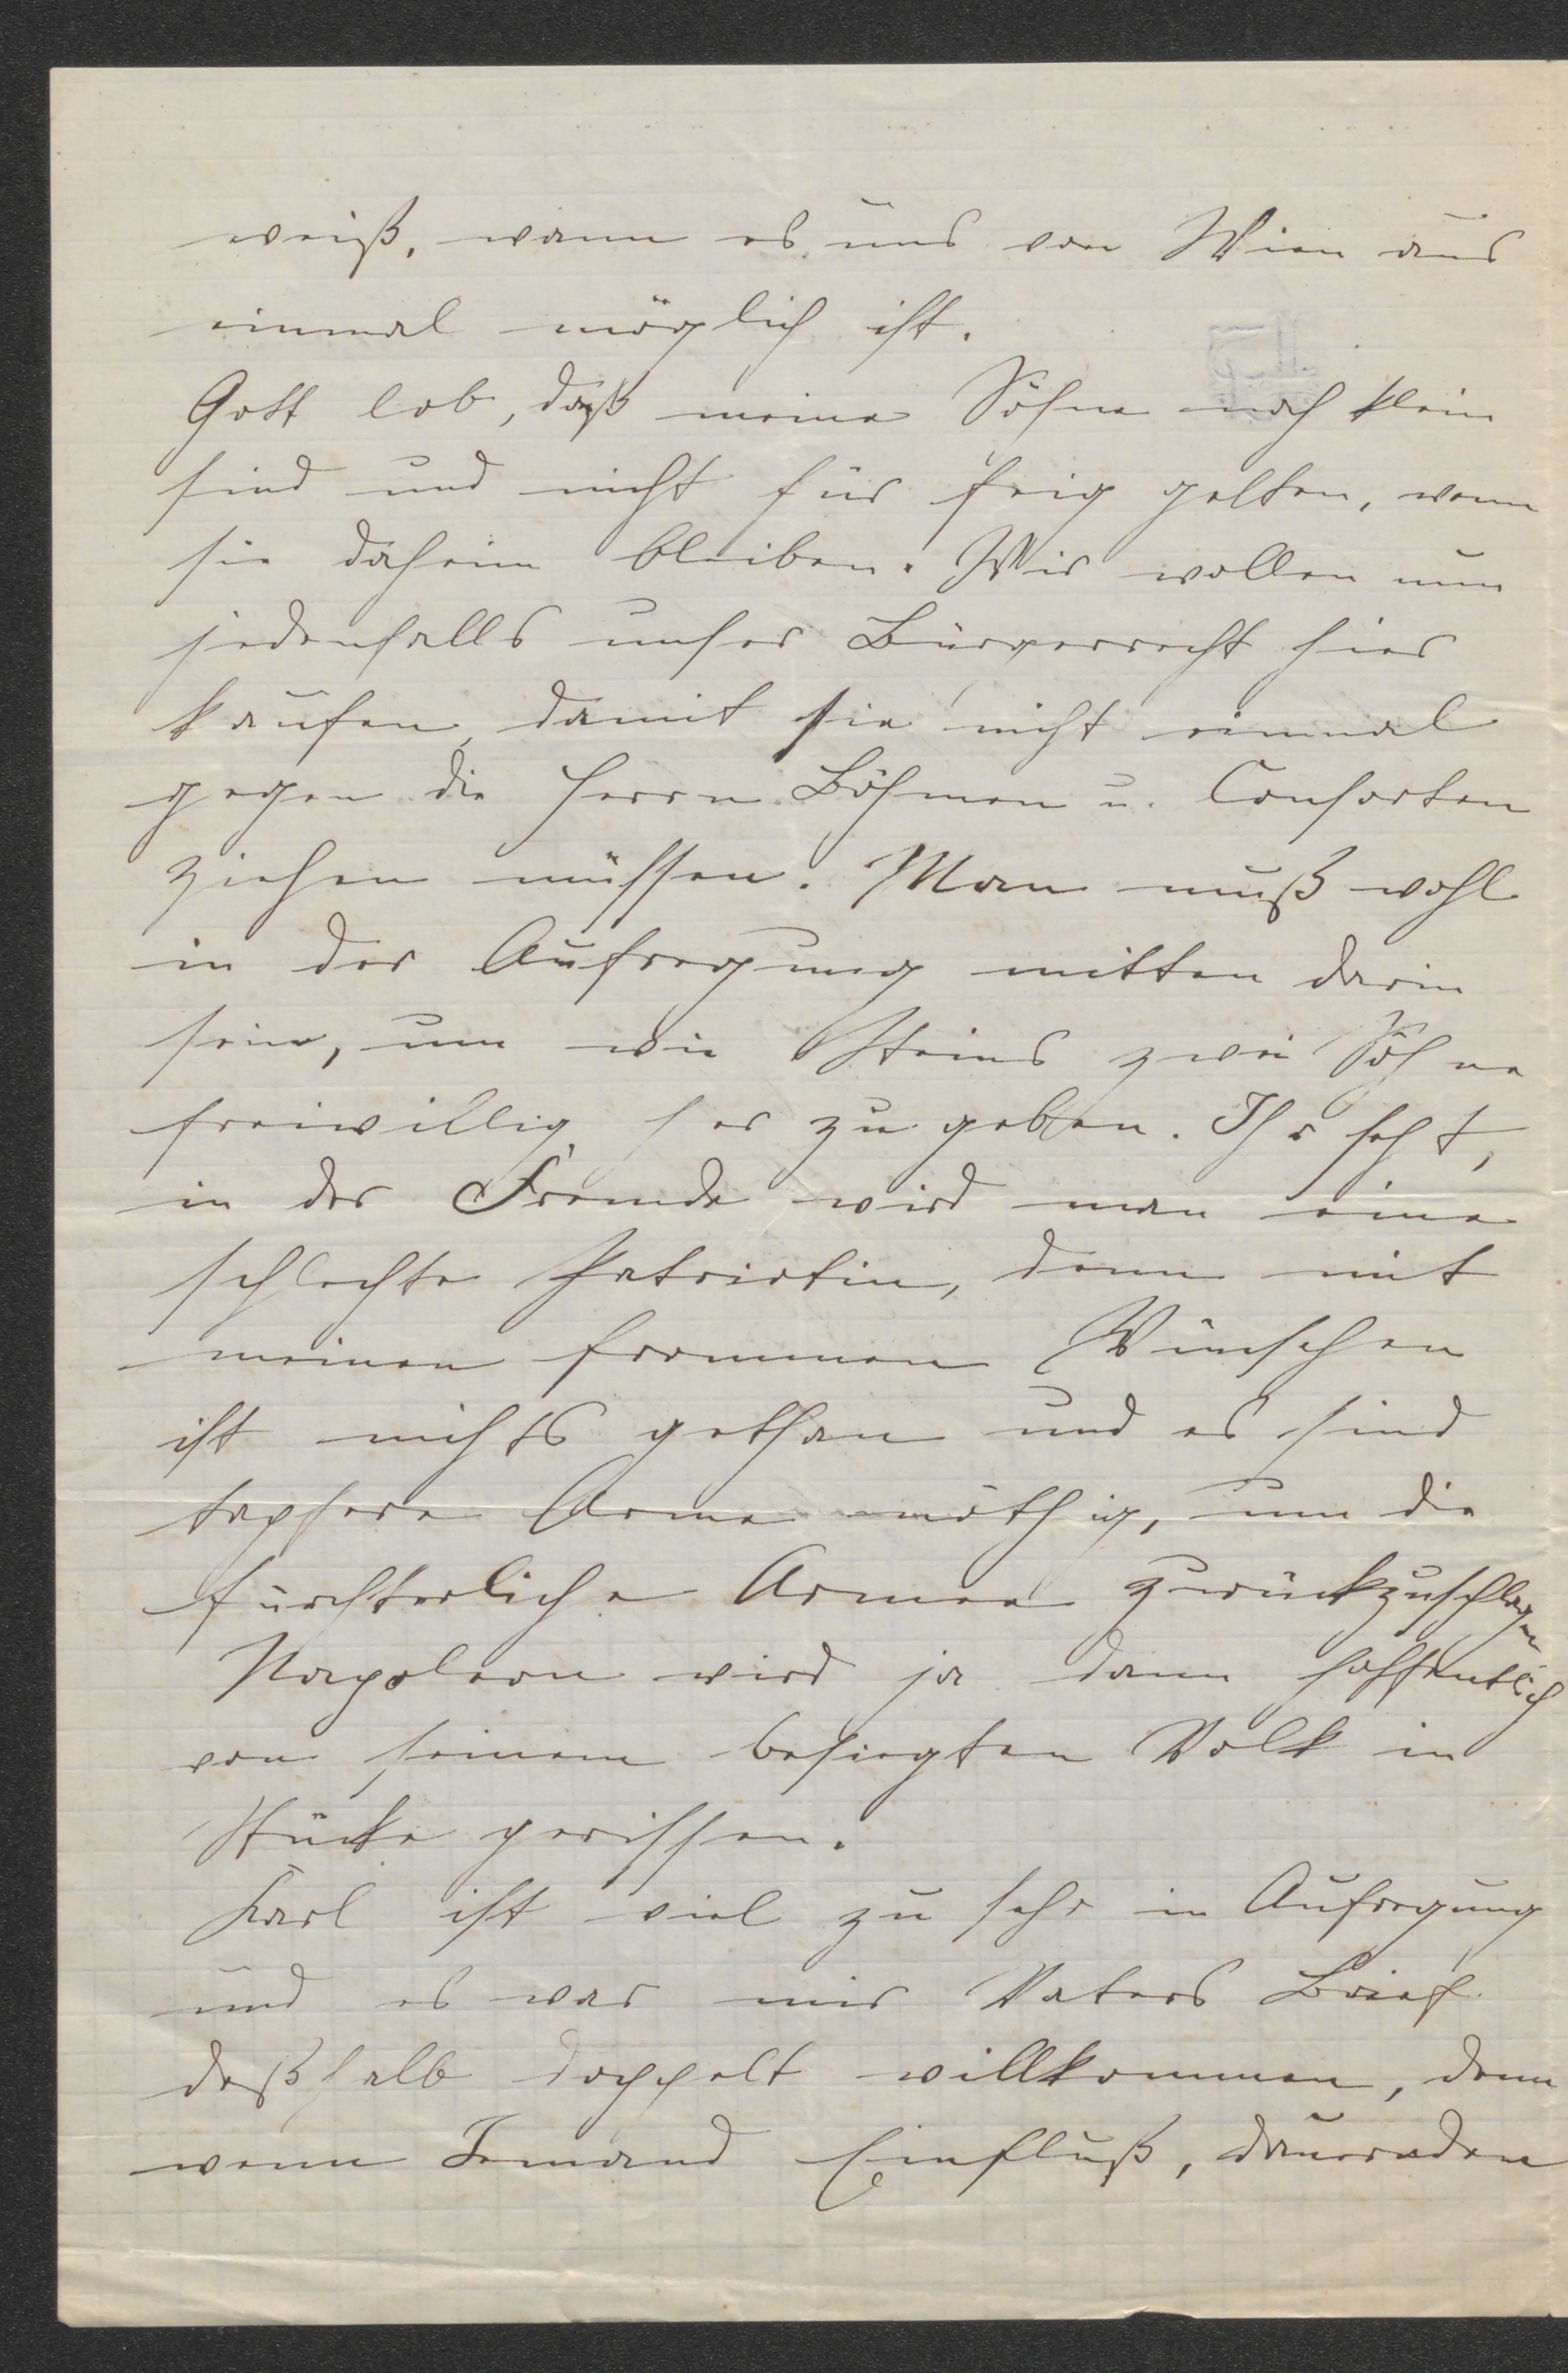 weiß, wann es uns von Wien aus
einmal möglich ist.
Gott lob, daß meine Söhne noch klein
sind und nicht für feig gelten, wenn
sie daheim bleiben. Wir wollen nun
jedenfalls unser Bürgerrecht hier
kaufen, damit sie nicht einmal
gegen die Herrn Böhmen u. Consorten
ziehen müssen. Man muß wohl
in der Aufregung mitten darin
sein, um wie Steins zwei Söhne
freiwillig her zu geben. Ihr seht,
in der Fremde wird man eine
schlechte Patriotin, denn mit
meinen frommen Wünschen
ist nichts gethan und es sind
tapfere Arme nöthig, um die
fürchterliche Armee zurückzuschlagen
Napoleon wird ja dann hoffentlich
von seinem besiegten Volk in
Stücke gerissen.
Karl ist viel zu sehr in Aufregung
und es war mir Vaters Brief
deßhalb doppelt willkommen, denn
wenn Jemand Einfluß, dauernden